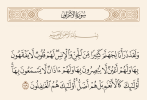 سورة الأعراف
وَلَقَدْ ذَرَأْنَا لِجَهَنَّمَ كَثِيرًا مِّنَ الْجِنِّ وَالْإِنسِ لَهُمْ قُلُوبٌ لَّا يَفْقَهُونَ
بِهَا وَلَهُمْ أَعْيُنٌ لَّا يُبْصِرُونَ بِهَا وَلَهُمْ آذَانٌ لَّا يَسْمَعُونَ بِهَا
أُولَٰئِكَ كَالْأَنْعَامِ بَلْ هُمْ أَضَلُّ أُولَٰئِكَ هُمُ الْغَافِلُونَ